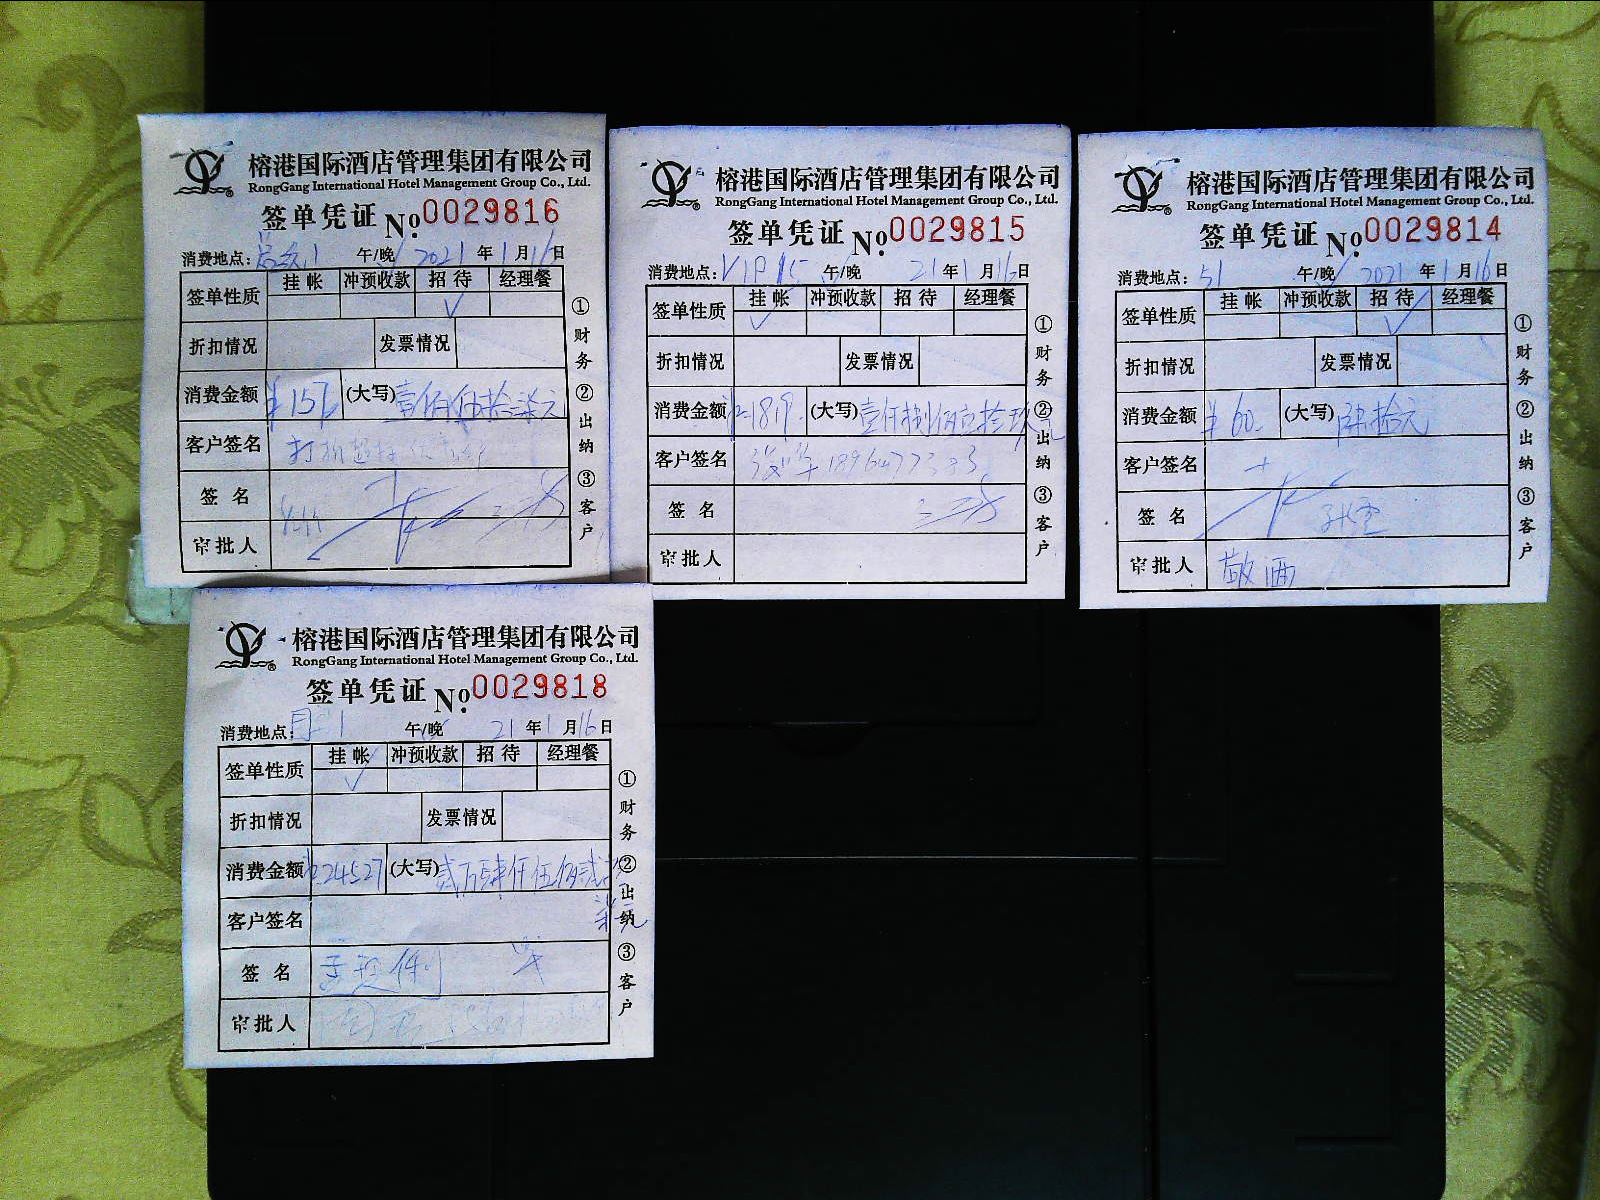 榕港国际酒店管理集团有限公司
RongGang International Hotel Management Group Co., Ltd.
签单凭证 No. 0029816
消费地点: 午/晚 2021 年 1 月 16 日
签单性质 挂帐 冲预收款 招待 经理餐
✓
折扣情况 发票情况
消费金额 ¥157 (大写) 壹佰伍拾柒元
客户签名
签名
审批人
①财务 ②出纳 ③客户
榕港国际酒店管理集团有限公司
RongGang International Hotel Management Group Co., Ltd.
签单凭证 No. 0029815
消费地点: VIP15 午/晚 21 年 1 月 16 日
签单性质 挂帐 冲预收款 招待 经理餐
✓
折扣情况 发票情况
消费金额 ¥1819- (大写) 壹仟捌佰壹拾玖元
客户签名
签名
审批人
①财务 ②出纳 ③客户
榕港国际酒店管理集团有限公司
RongGang International Hotel Management Group Co., Ltd.
签单凭证 No. 0029814
消费地点: 51 午/晚 2021 年 1 月 16 日
签单性质 挂帐 冲预收款 招待 经理餐
✓
折扣情况 发票情况
消费金额 ¥60- (大写) 陆拾元
客户签名
签名
审批人 敬酒
①财务 ②出纳 ③客户
榕港国际酒店管理集团有限公司
RongGang International Hotel Management Group Co., Ltd.
签单凭证 No. 0029818
消费地点: 午/晚 21 年 1 月 16 日
签单性质 挂帐 冲预收款 招待 经理餐
✓
折扣情况 发票情况
消费金额 ¥24527 (大写) 贰万肆仟伍佰贰拾
柒元
客户签名
签名
审批人
①财务 ②出纳 ③客户